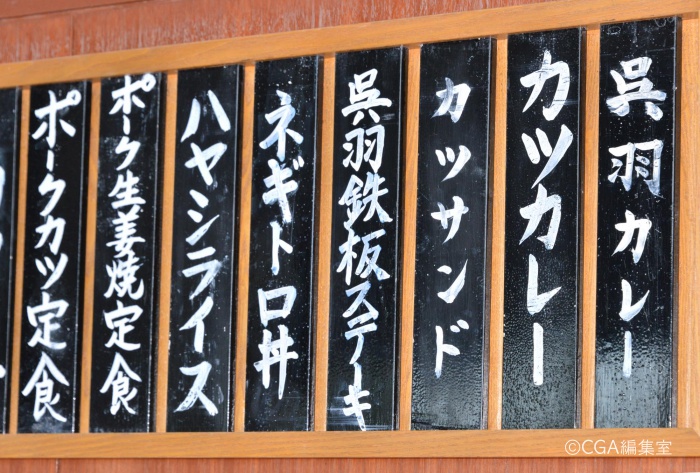 呉羽カレー
カツカレー
カツサンド
呉羽鉄板ステーキ
ネギトロ丼
ハヤシライス
ポーク生姜焼定食
ポークカツ定食
©CGA編集室